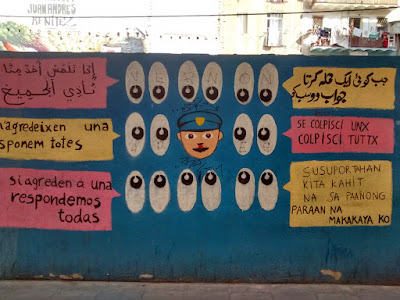 JUAN ANDRES
BENITEZ
إذا تلمس أحد منا
نأذي الجميع
agredeixen una
sponem totes
si agreden a una
respondemos
todas
جب کوئی ایک حملہ کرتا
جواب
SE COLPISCI UNX
COLPISCI TUTTX
SUSUPORTAHAN
KITA KAHIT
NA SA PAANONG
PARAAN NA
MAKAKAYA KO